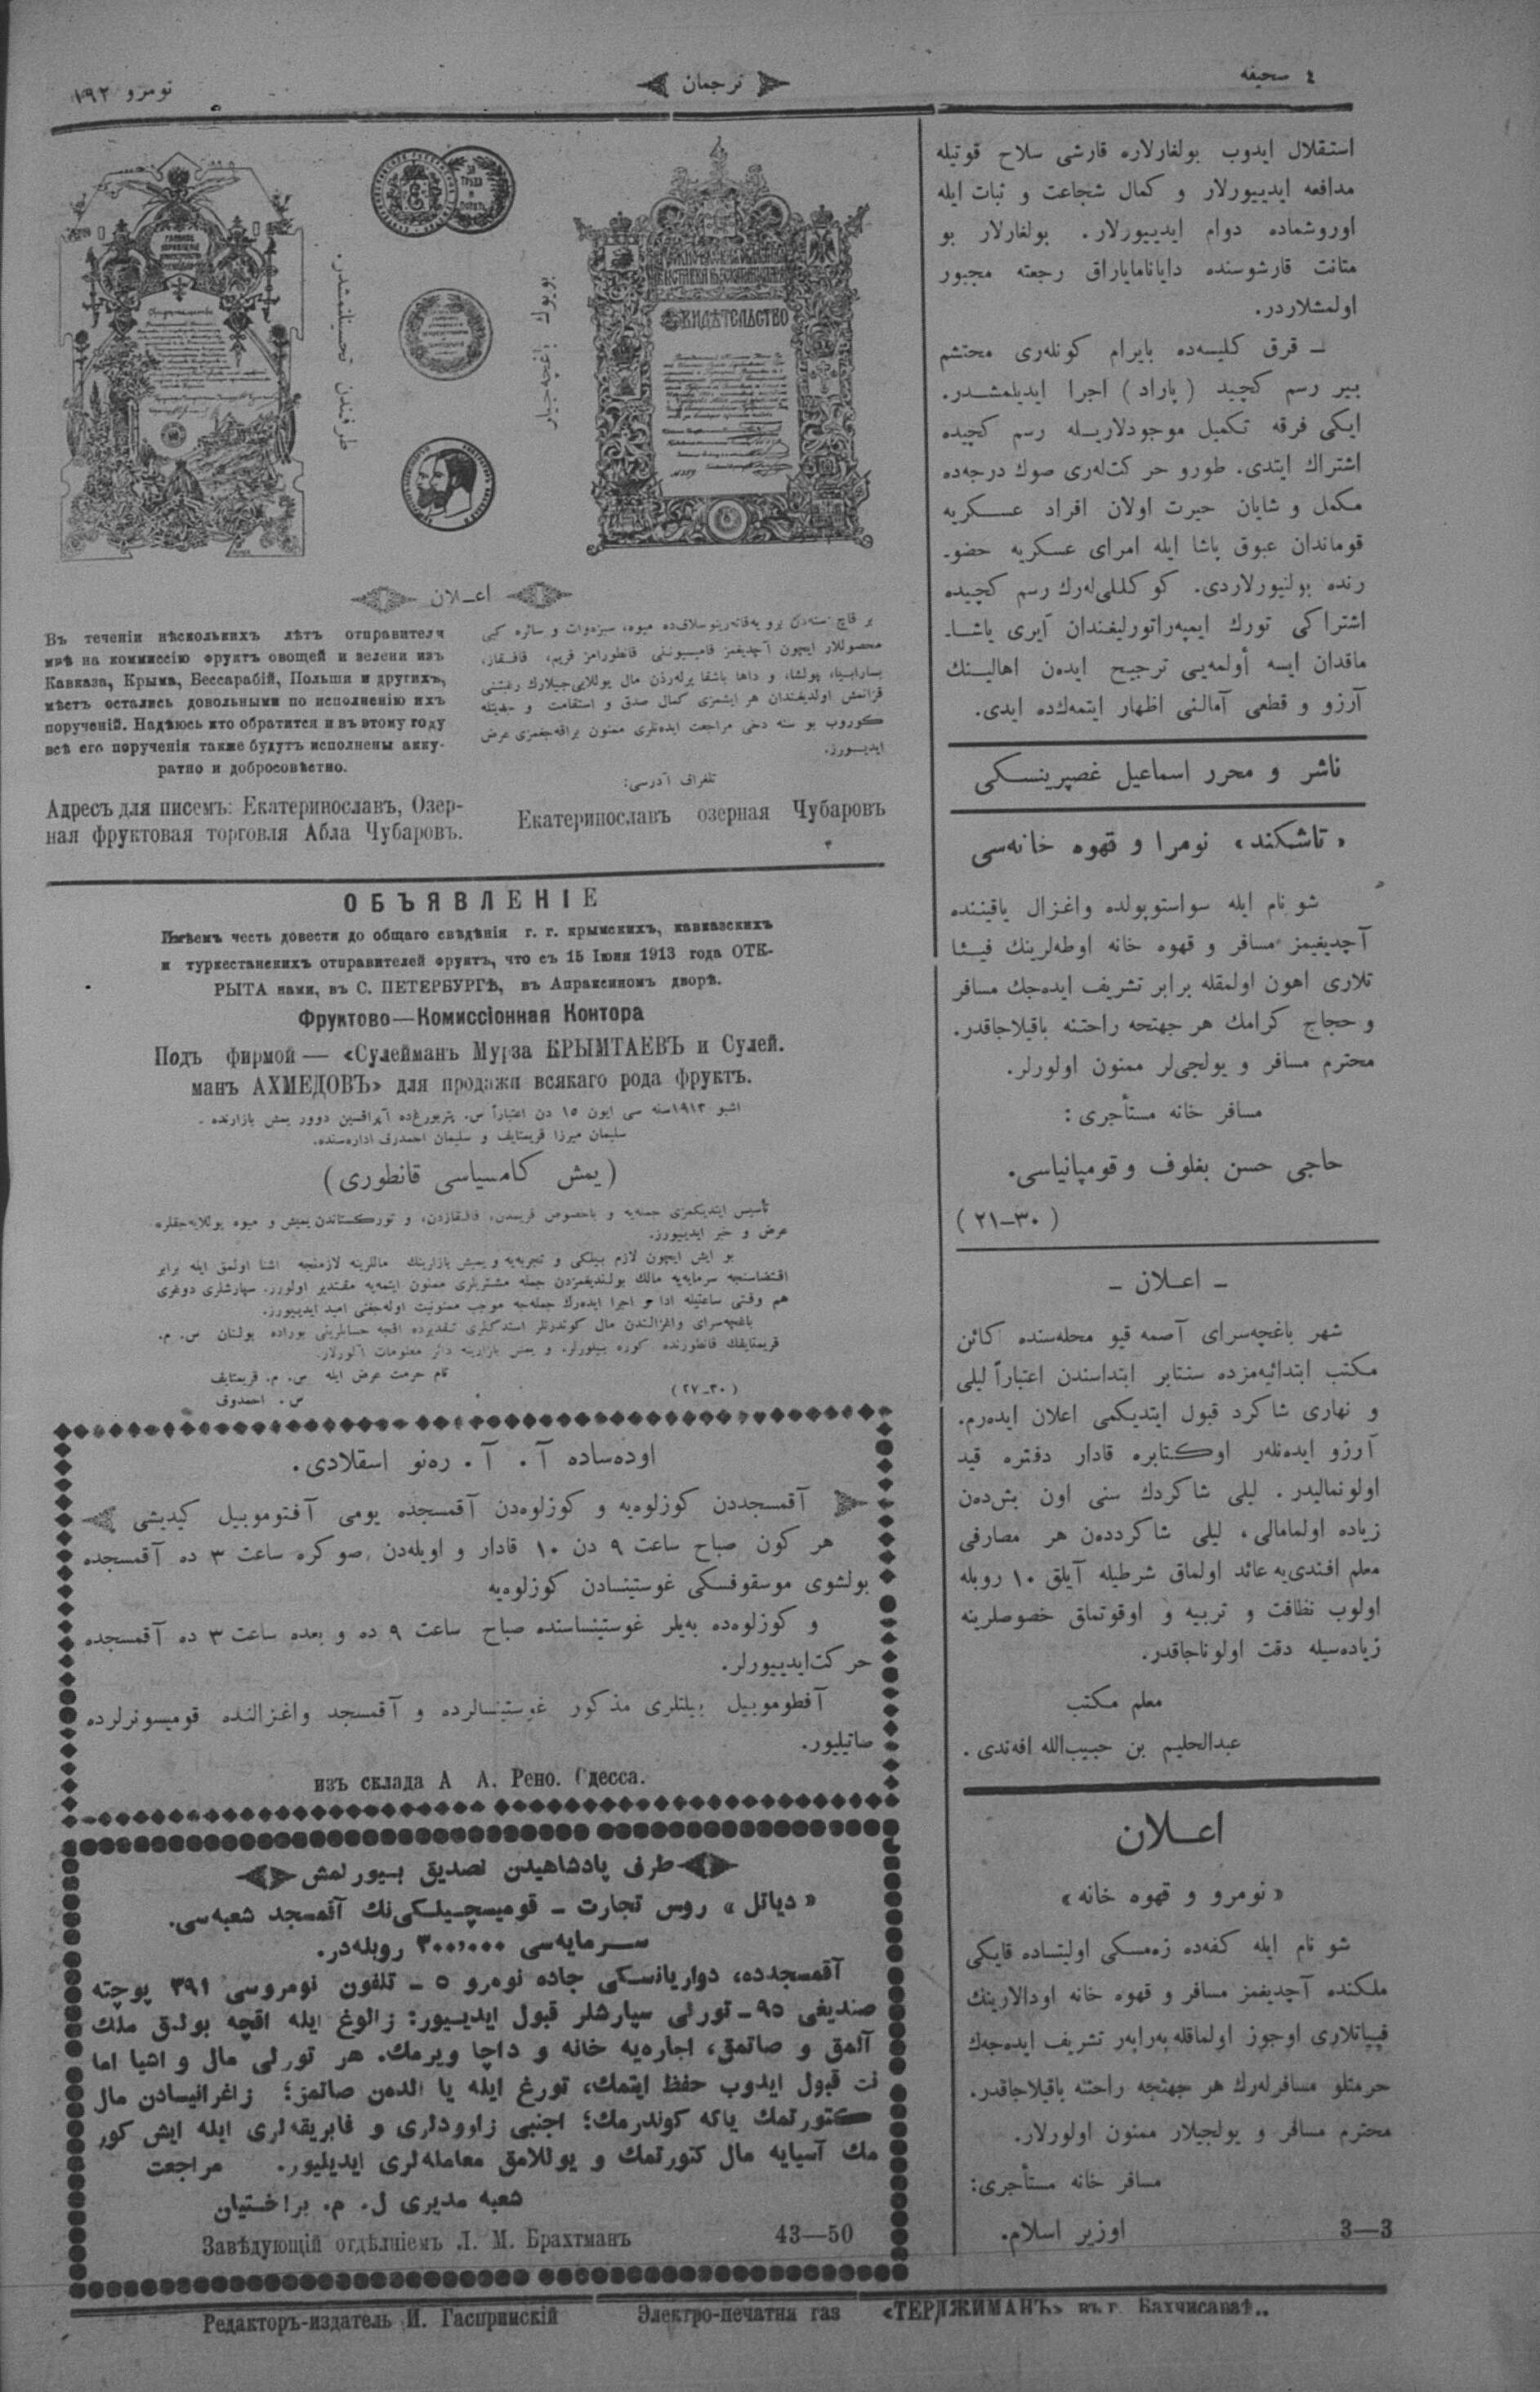 ٤ صحیفه
ترجمان
نومرو ١٩٢
استقلال ایدوب بولغارلاره قارشی سلاح قوتیله
مدافعه ایدییورلار و كمال شجاعت و ثبات ایله
اوروشماده دوام ایدییورلار. بولغارلار بو
متانت قارشوسنده دایاناماياراق رجعته مجبور
اولمشلاردر.
ـ قرق كلیسه‌ده بایرام كونله‌ری محتشم
بیر رسم كچید (پاراد) اجرا ایدیلمشدر.
ایكی فرقه تكمیل موجودلاریله رسم كچیده
اشتراك ایتدی. طورو حركت‌له‌ری صوك درجه‌ده
مكمل و شایان حیرت اولان افراد عسكریه
قوماندان عبوق پاشا ایله امرای عسكریه حضو-
رنده بولنیورلاردی. كوكللی‌له‌رك رسم كچیده
اشتراكی تورك ایمپه‌راتورلیغندان آیری یاشا-
ماقدان ایسه أولمه‌یی ترجیح ایده‌ن اهالینك
آرزو و قطعی آمالنی اظهار ایتمه‌كده ایدی.
ناشر و محرر اسماعیل غصپرینسكی
«تاشكند» نومرا و قهوه خانه‌سی
شو نام ایله سواستوپولده واغزال یاقیننده
آچدیغیمز مسافر و قهوه خانه اوطه‌لرینك فیئا
تلاری اهون اولمقله برابر تشریف ایده‌جك مسافر
و حجاج كرامك هر جهتحه راحتنه باقیلاجاقدر.
محترم مسافر و یولجی‌لر ممنون اولورلر.
مسافر خانه مستأجری:
حاجی حسن بغلوف و قومپانیاسی.
(٣٠–٢١)
ـ اعلان ـ
شهر باغچه‌سرای آصمه قیو محله‌سنده كائن
مكتب ابتدائیه‌مزده سنتابر ابتداسندن اعتباراً لیلی
و نهاری شاكرد قبول ایتدیكمی اعلان ایده‌رم.
آرزو ایده‌نله‌ر اوكتابره قادار دفتره قید
اولونمالیدر. لیلی شاكردك سنی اون بش‌ده‌ن
زیاده اولمامالی، لیلی شاكردده‌ن هر مصارفی
معلم افندی‌یه عائد اولماق شرطیله آیلق ١٠ روبله
اولوب نظافت و تربیه و اوقوتماق خصوصلرینه
زیاده‌سیله دقت اولوناجاقدر.
معلم مكتب
عبدالحلیم بن حبیب‌الله افه‌ندی.
اعلان
«نومرو و قهوه خانه»
شو نام ایله كفه‌ده زه‌مسكی اولیتساده قایكی
ملكنده آچدیغمز مسافر و قهوه خانه اودالارینك
فییاتلاری اوجوز اولماقله به‌رابه‌ر تشریف ایده‌جه‌ك
حرمتلو مسافرله‌رك هر جهتجه راحتنه باقیلاجاقدر.
محترم مسافر و یولجیلار ممنون اولورلار.
مسافر خانه مستأجری:
اوزیر اسلام.
3—3
بویوك باغچه‌جیلر
طرفندن تحسینلنمشدر.
СВИДѢТЕЛЬСТВО
اعلان
محصوللار ایچون آچدیغمز قامیسیونی قانطورامز قریم، قافقاز،
بسارابیا، پولشا، و داها باشقا یرله‌ردن مال یوللایی‌جیلارك رغبتنی
قزانمش اولدیغندان هر ایشمزی كمال صدق و استقامت و جدیتله
كوروب بو سنه دخی مراجعت ایده‌نلری ممنون براقه‌جغمزی عرض
ایدیورز.
تلغراف آدرسی:
Екатеринославъ озерная Чубаровъ
Въ теченіи нѣсколькихъ лѣтъ отправителя
мнѣ на коммиссію фруктъ овощей и зелени изъ
Кавказа, Крыма, Бессарабій, Польши и другихъ,
мѣстъ остались довольными по исполненію ихъ
порученій. Надѣюсь кто обратится и въ этому году
всѣ его порученія также будутъ исполнены акку-
ратно и добросовѣстно.
Адресъ для писемъ: Екатеринославъ, Озер-
ная фруктовая торговля Абла Чубаровъ.
ОБЪЯВЛЕНІЕ
Имѣемъ честь довести до общаго свѣдѣнія г. г. крымскихъ, кавказскихъ
и туркестанскихъ отправителей фруктъ, что съ 15 Іюня 1913 года ОТК-
РЫТА нами, въ С. ПЕТЕРБУРГѢ, въ Апраксиномъ дворѣ.
Фруктово—Комиссіонная Контора
Подъ фирмой — «Сулейманъ Мурза КРЫМТАЕВЪ и Сулей.
манъ АХМЕДОВЪ» для продажи всякаго рода фруктъ.
اشبو ١٩١٣ سنه سی ایون ١٥ دن اعتباراً س. پتربورغ‌ده آپراقسین دوور یمش بازارنده
سلیمان میرزا قریمتایف و سلیمان احمدوف اداره‌سنده.
(یمش كامسیاسی قانطوری)
تأسیس ایتدیكمزی جمله‌یه و باخصوص قریمدن، قافقازدن، و توركستاندن یمیش و میوه یوللایه‌جقلره
عرض و خبر ایدییورز.
بو ایش ایچون لازم بیلكی و تجربه‌یه و یمیش بازارینك ماللرینه لازمنجه اشنا اولمق ایله برابر
اقتضاسنجه سرمایه‌یه مالك بولندیغمزدن جمله مشتریلری ممنون ایتمه‌یه مقتدیر اولورز. سپارشلری دوغری
هم وقتی ساعتیله ادا و اجرا ایده‌رك جمله‌جه موجب ممنونیت اوله‌جغنی امید ایدییورز.
باغچه‌سرای واغزالندن مال كوندرنلر استدكلری تقدیرده اقچه حسابلرینی بوراده بولنان س. م.
قریمتایفك قانطورنده كوره بیلورلر. و یمش بازارینه دائر معلومات آلورلار.
تام حرمت عرض ایله س. م. قریمتایف
س. احمدوف
(٣٠–٢٧)
اوده‌ساده آ. آ. ره‌نو اسقلادی.
آقمسجددن كوزلوه‌یه و كوزلوه‌دن آقمسجده یومی آفتوموبیل كیدیشی
هر كون صباح ساعت ٩ دن ١٠ قادار و اویله‌دن صوكره ساعت ٣ ده آقمسجده
بولشوی موسقوفسكی غوستینسادن كوزلوه‌یه
و كوزلوه‌ده به‌یلر غوستینساسنده صباح ساعت ٩ ده و بعده ساعت ٣ ده آقمسجده
حركت ایدییورلر.
آفطوموبیل بیلتلری مذكور غوستینسالرده و آقمسجد واغزالنده قومیسونرلرده
صاتیلیور.
изъ склада А А. Рено. Одесса.
طرف پادشاهیدن تصدیق بیورلمش
«دیاتل» روس تجارت ـ قومیسچیلكی‌نك آقمسجد شعبه‌سی.
سرمایه‌سی ٣٠٠،٠٠٠ روبله‌در.
آقمسجده، دواریانسكی جاده نومرو ٥ ـ تلفون نومروسی ٣٩١ پوچته
صندیغی ٩٥ ـ تورلی سپارشلر قبول ایدییور: زالوغ ایله اقچه بولدق ملك
آلمق و صاتمق، اجاره‌یه خانه و داچا ویرمك. هر تورلی مال و اشیا اما
نت قبول ایدوب حفظ ایتمك، تورغ ایله یا الدەن صاتمز؛ زاغرانیسادن مال
كتورتمك یاكه كوندرمك؛ اجنبی زاوودلری و فابریقه‌لری ایله ایش كور
مك آسیایه مال كتورتمك و یوللامق معامله‌لری ایدیلیور. مراجعت
شعبه مدیری ل. م. براختیان
Завѣдующій отдѣлніемъ Л. М. Брахтманъ
43—50
Редакторъ-издатель И. Гаспринскій
Электро-печатня газ «ТЕРДЖИМАНЪ» въ г. Бахчисараѣ..